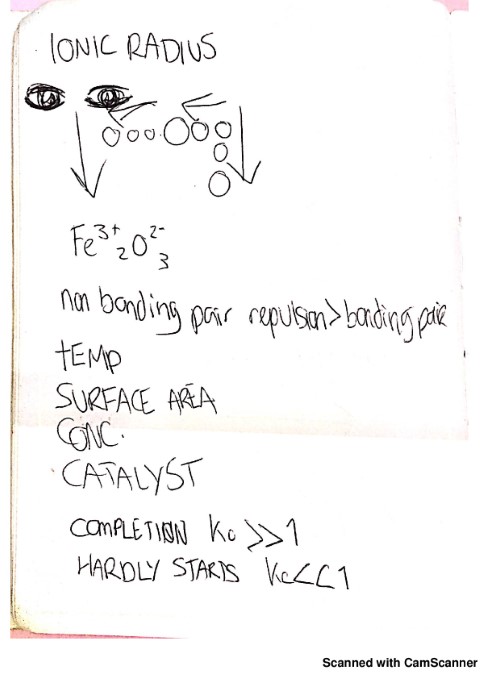 IONIC RADIUS
Fe³⁺₂O²⁻₃
non bonding pair repulsion>bonding pair
tEMP
SURFACE AREA
CONC.
CATALYST
COMPLETION Kc >>1
HARDLY STARTS Kc<<1
Scanned with CamScanner